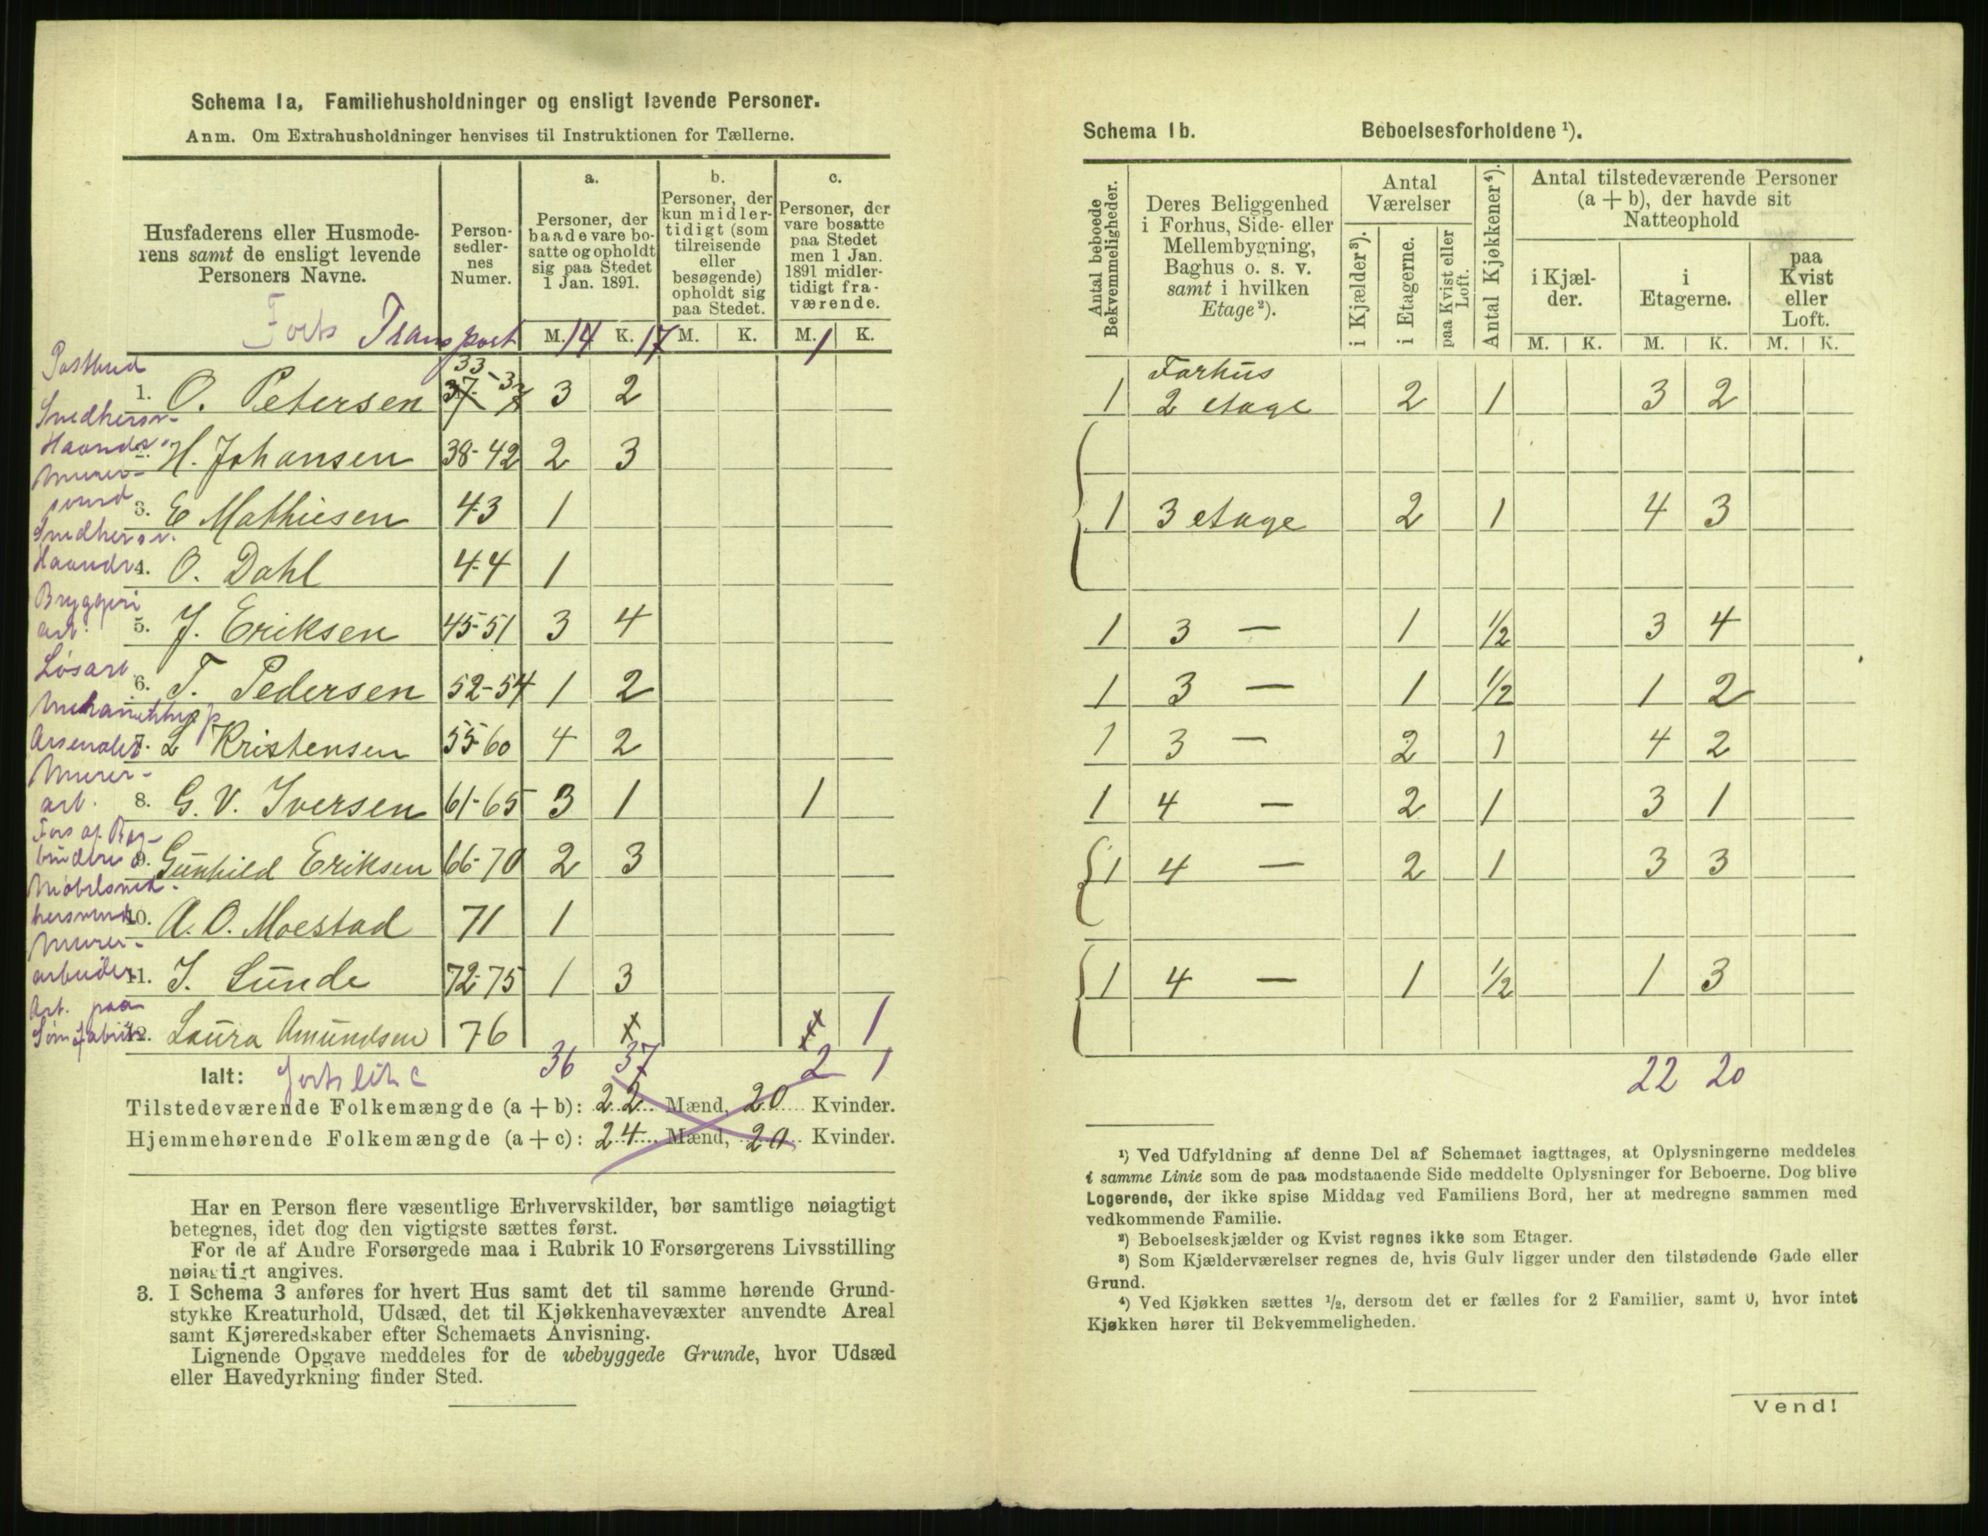 Schema 1a, Familiehusholdninger og ensligt levende Personer.
Anm. Om Extrahusholdninger henvises til Instruktionen for Tællerne.
Husfaderens eller Husmoderens samt de ensligt levende Personers Navne.
Person-sedlernes Numer.
a.
Personer, der baade vare bosatte og opholdt sig paa Stedet 1 Jan. 1891.
b.
Personer, der kun midlertidigt (som tilreisende eller besøgende) opholdt sig paa Stedet.
c.
Personer, der vare bosatte paa Stedet men 1 Jan. 1891 midlertidigt fraværende.
M. K. M. K. M. K.
Transport 14 17 1
Postbud
1. O. Petersen 33-37 3 2
2. H. Johansen 38-42 2 3
3. E Mathiesen 43 1
4. O. Dahl 44 1
Bryggeri arb.
5. J. Eriksen 45-51 3 4
Løsarb.
6. T. Pedersen 52-54 1 2
7. L Kristensen 55-60 4 2
Murer-
arb. 8. G. V. Iversen 61-65 3 1 1
9. Gunhild Eriksen 66-70 2 3
10. A. O. Moestad 71 1
Murer-
arbeider 11. J. Lunde 72-75 1 3
Arb. paa
12. Laura Amundsen 76 1
Ialt: 36 37 2 1
Tilstedeværende Folkemængde (a + b): 22 Mænd, 20 Kvinder.
Hjemmehørende Folkemængde (a + c): 24 Mænd, 20 Kvinder.
Har en Person flere væsentlige Erhvervskilder, bør samtlige nøiagtigt
betegnes, idet dog den vigtigste sættes først.
For de af Andre Forsørgede maa i Rubrik 10 Forsørgerens Livsstilling
nøiagtigt angives.
3. I Schema 3 anføres for hvert Hus samt det til samme hørende Grund-
stykke Kreaturhold, Udsæd, det til Kjøkkenhavevæxter anvendte Areal
samt Kjøreredskaber efter Schemaets Anvisning.
Lignende Opgave meddeles for de ubebyggede Grunde, hvor Udsæd
eller Havedyrkning finder Sted.
Schema 1b. Beboelsesforholdene ¹).
Antal beboede Bekvemmeligheder.
Deres Beliggenhed i Forhus, Side- eller Mellembygning, Baghus o. s. v. samt i hvilken Etage ²).
Antal Værelser
i Kjælder ³).
i Etagerne.
paa Kvist eller Loft.
Antal Kjøkkener ⁴).
Antal tilstedeværende Personer (a + b), der havde sit Natteophold
i Kjælder.
i Etagerne.
paa Kvist eller Loft.
M. K. M. K. M. K.
Forhus
1 2 etage 2 1 3 2
1 3 etage 2 1 4 3
1 3 — 1 ½ 3 4
1 3 — 1 ½ 1 2
1 3 — 2 1 4 2
1 4 — 2 1 3 1
1 4 — 2 1 3 3
1 4 — 1 ½ 1 3
22 20
¹) Ved Udfyldning af denne Del af Schemaet iagttages, at Oplysningerne meddeles
i samme Linie som de paa modstaaende Side meddelte Oplysninger for Beboerne. Dog blive
Logerende, der ikke spise Middag ved Familiens Bord, her at medregne sammen med
vedkommende Familie.
²) Beboelseskjælder og Kvist regnes ikke som Etager.
³) Som Kjælderværelser regnes de, hvis Gulv ligger under den tilstødende Gade eller
Grund.
⁴) Ved Kjøkken sættes ½, dersom det er fælles for 2 Familier, samt 0, hvor intet
Kjøkken hører til Bekvemmeligheden.
Vend!